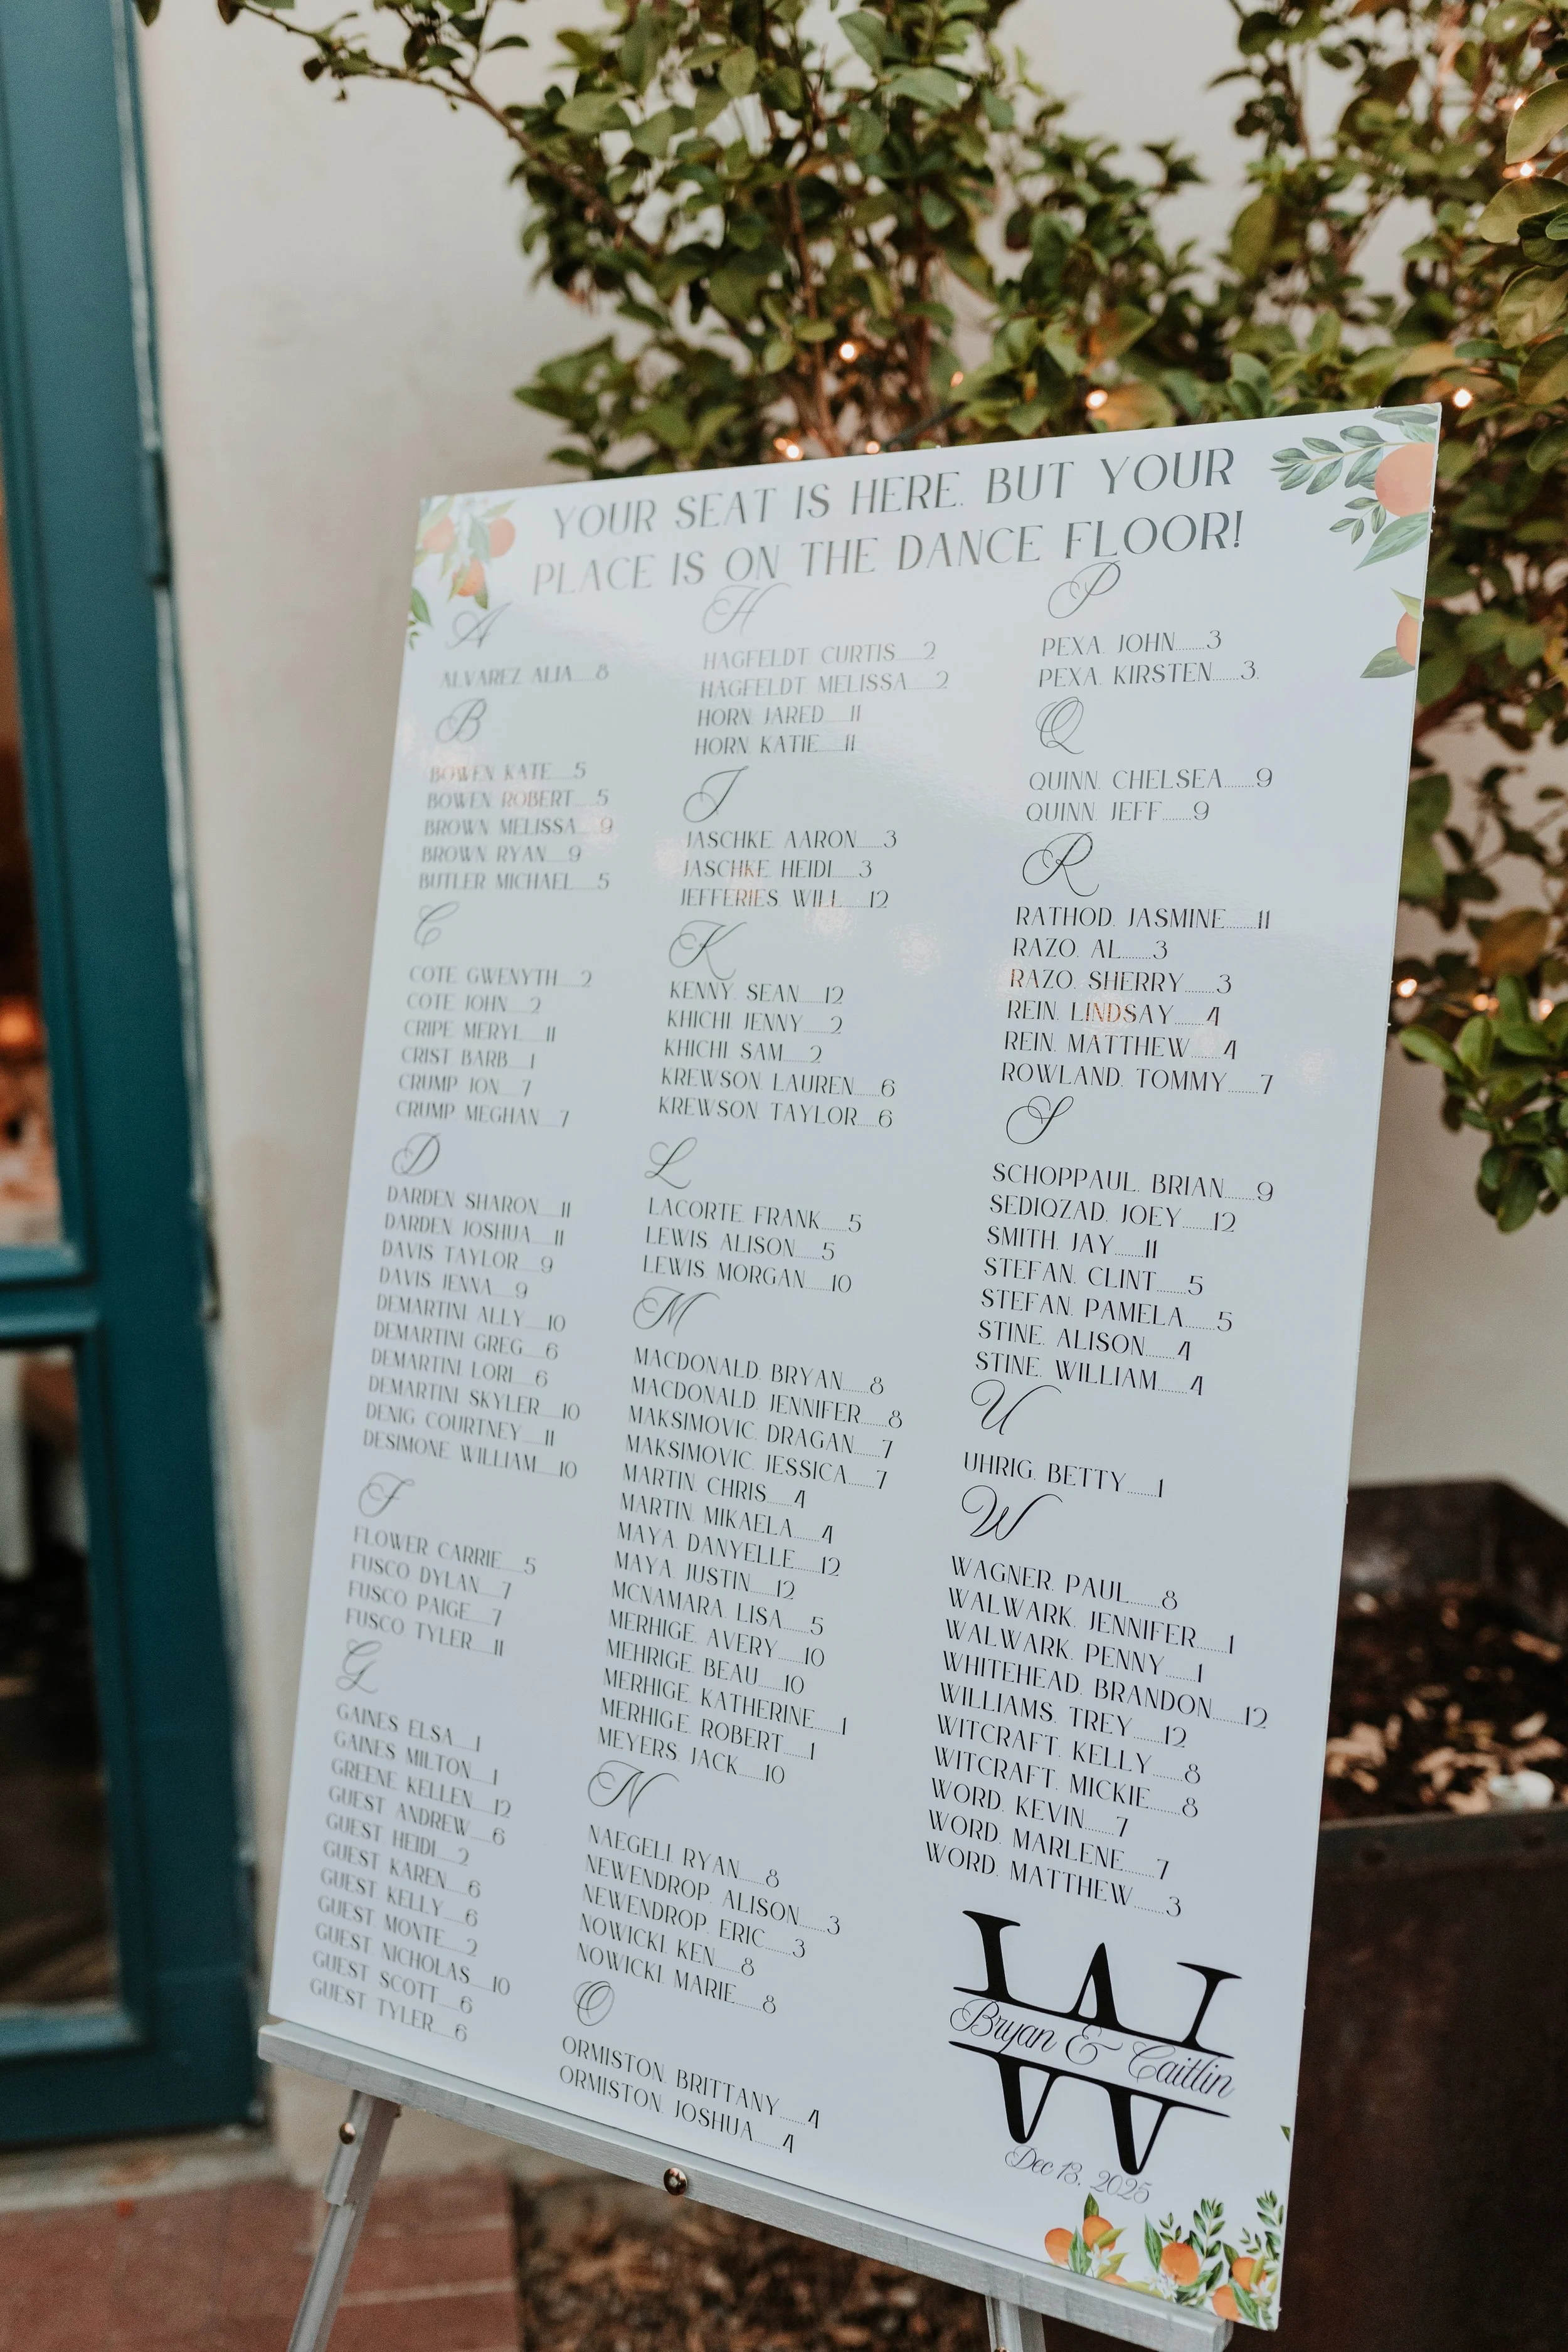 YOUR SEAT IS HERE, BUT YOUR
PLACE IS ON THE DANCE FLOOR!
A
ALVAREZ ALIA......8
B
BOWEN KATE......5
BOWEN ROBERT......5
BROWN MELISSA......9
BROWN RYAN......9
BUTLER MICHAEL......5
C
COTE GWENYTH......2
COTE JOHN......2
CRIPE MERYL......11
CRIST BARB......1
CRUMP JON......7
CRUMP MEGHAN......7
D
DARDEN SHARON......11
DARDEN JOSHUA......11
DAVIS TAYLOR......9
DAVIS JENNA......9
DEMARTINI ALLY......10
DEMARTINI GREG......6
DEMARTINI LORI......6
DEMARTINI SKYLER......10
DENIG COURTNEY......11
DESIMONE, WILLIAM......10
F
FLOWER CARRIE......5
FUSCO DYLAN......7
FUSCO PAIGE......7
FUSCO TYLER......11
G
GAINES ELSA......1
GAINES MILTON......1
GREENE, KELLEN......12
GUEST ANDREW......6
GUEST HEIDI......2
GUEST KAREN......6
GUEST KELLY......6
GUEST MONTE......2
GUEST NICHOLAS......10
GUEST SCOTT......6
GUEST TYLER......6
H
HAGFELDT CURTIS......2
HAGFELDT MELISSA......2
HORN, JARED......11
HORN, KATIE......11
J
JASCHKE, AARON......3
JASCHKE, HEIDI......3
JEFFERIES, WILL......12
K
KENNY, SEAN......12
KHICHI, JENNY......2
KHICHI, SAM......2
KREWSON, LAUREN......6
KREWSON, TAYLOR......6
L
LACORTE, FRANK......5
LEWIS, ALISON......5
LEWIS, MORGAN......10
M
MACDONALD, BRYAN......8
MACDONALD, JENNIFER......8
MAKSIMOVIC, DRAGAN......7
MAKSIMOVIC, JESSICA......7
MARTIN, CHRIS......4
MARTIN, MIKAELA......4
MAYA, DANYELLE......12
MAYA, JUSTIN......12
MCNAMARA, LISA......5
MERHIGE, AVERY......10
MEHRIGE, BEAU......10
MERHIGE, KATHERINE......1
MERHIGE, ROBERT......1
MEYERS, JACK......10
N
NAEGELI, RYAN......8
NEWENDROP, ALISON......3
NEWENDROP, ERIC......3
NOWICKI, KEN......8
NOWICKI, MARIE......8
O
ORMISTON, BRITTANY......4
ORMISTON, JOSHUA......4
P
PEXA, JOHN......3
PEXA, KIRSTEN......3
Q
QUINN, CHELSEA......9
QUINN, JEFF......9
R
RATHOD, JASMINE......11
RAZO, AL......3
RAZO, SHERRY......3
REIN, LINDSAY......4
REIN, MATTHEW......4
ROWLAND, TOMMY......7
S
SCHOPPAUL, BRIAN......9
SEDIQZAD, JOEY......12
SMITH, JAY......11
STEFAN, CLINT......5
STEFAN, PAMELA......5
STINE, ALISON......4
STINE, WILLIAM......4
U
UHRIG, BETTY......1
W
WAGNER, PAUL......8
WALWARK, JENNIFER......1
WALWARK, PENNY......1
WHITEHEAD, BRANDON......12
WILLIAMS, TREY......12
WITCRAFT, KELLY......8
WITCRAFT, MICKIE......8
WORD, KEVIN......7
WORD, MARLENE......7
WORD, MATTHEW......3
W
Bryan & Caitlin
Dec 13, 2025